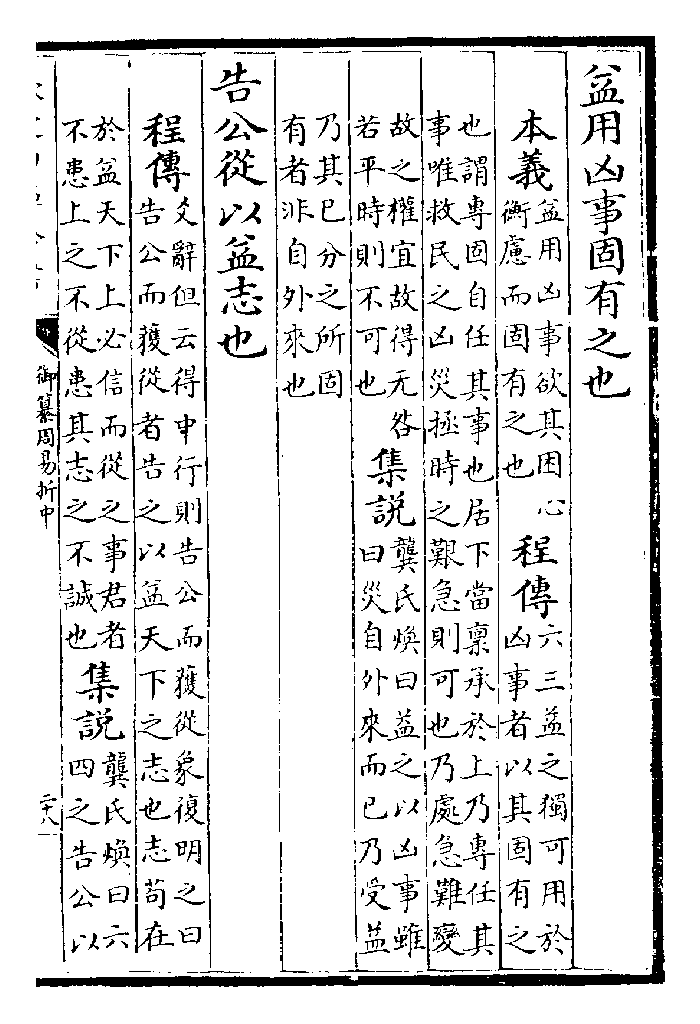 益用凶事固有之也
本義
益用凶事欲其困心
衡慮而固有之也
程傳
六三益之獨可用於
凶事者以其固有之
也謂專固自任其事也居下當稟承於上乃專任其
事唯救民之凶災拯時之艱急則可也乃處急難變
故之權宜故得无咎
若平時則不可也
集説
龔氏煥曰益之以凶事雖
曰災自外來而已乃受益
乃其已分之所固
有者非自外來也
告公從以益志也
程傳
爻辭但云得中行則告公而獲從象復明之曰
告公而獲從者告之以益天下之志也志苟在
於益天下上必信而從之事君者
不患上之不從患其志之不誠也
集説
龔氏煥曰六
四之告公以
御纂周易折中